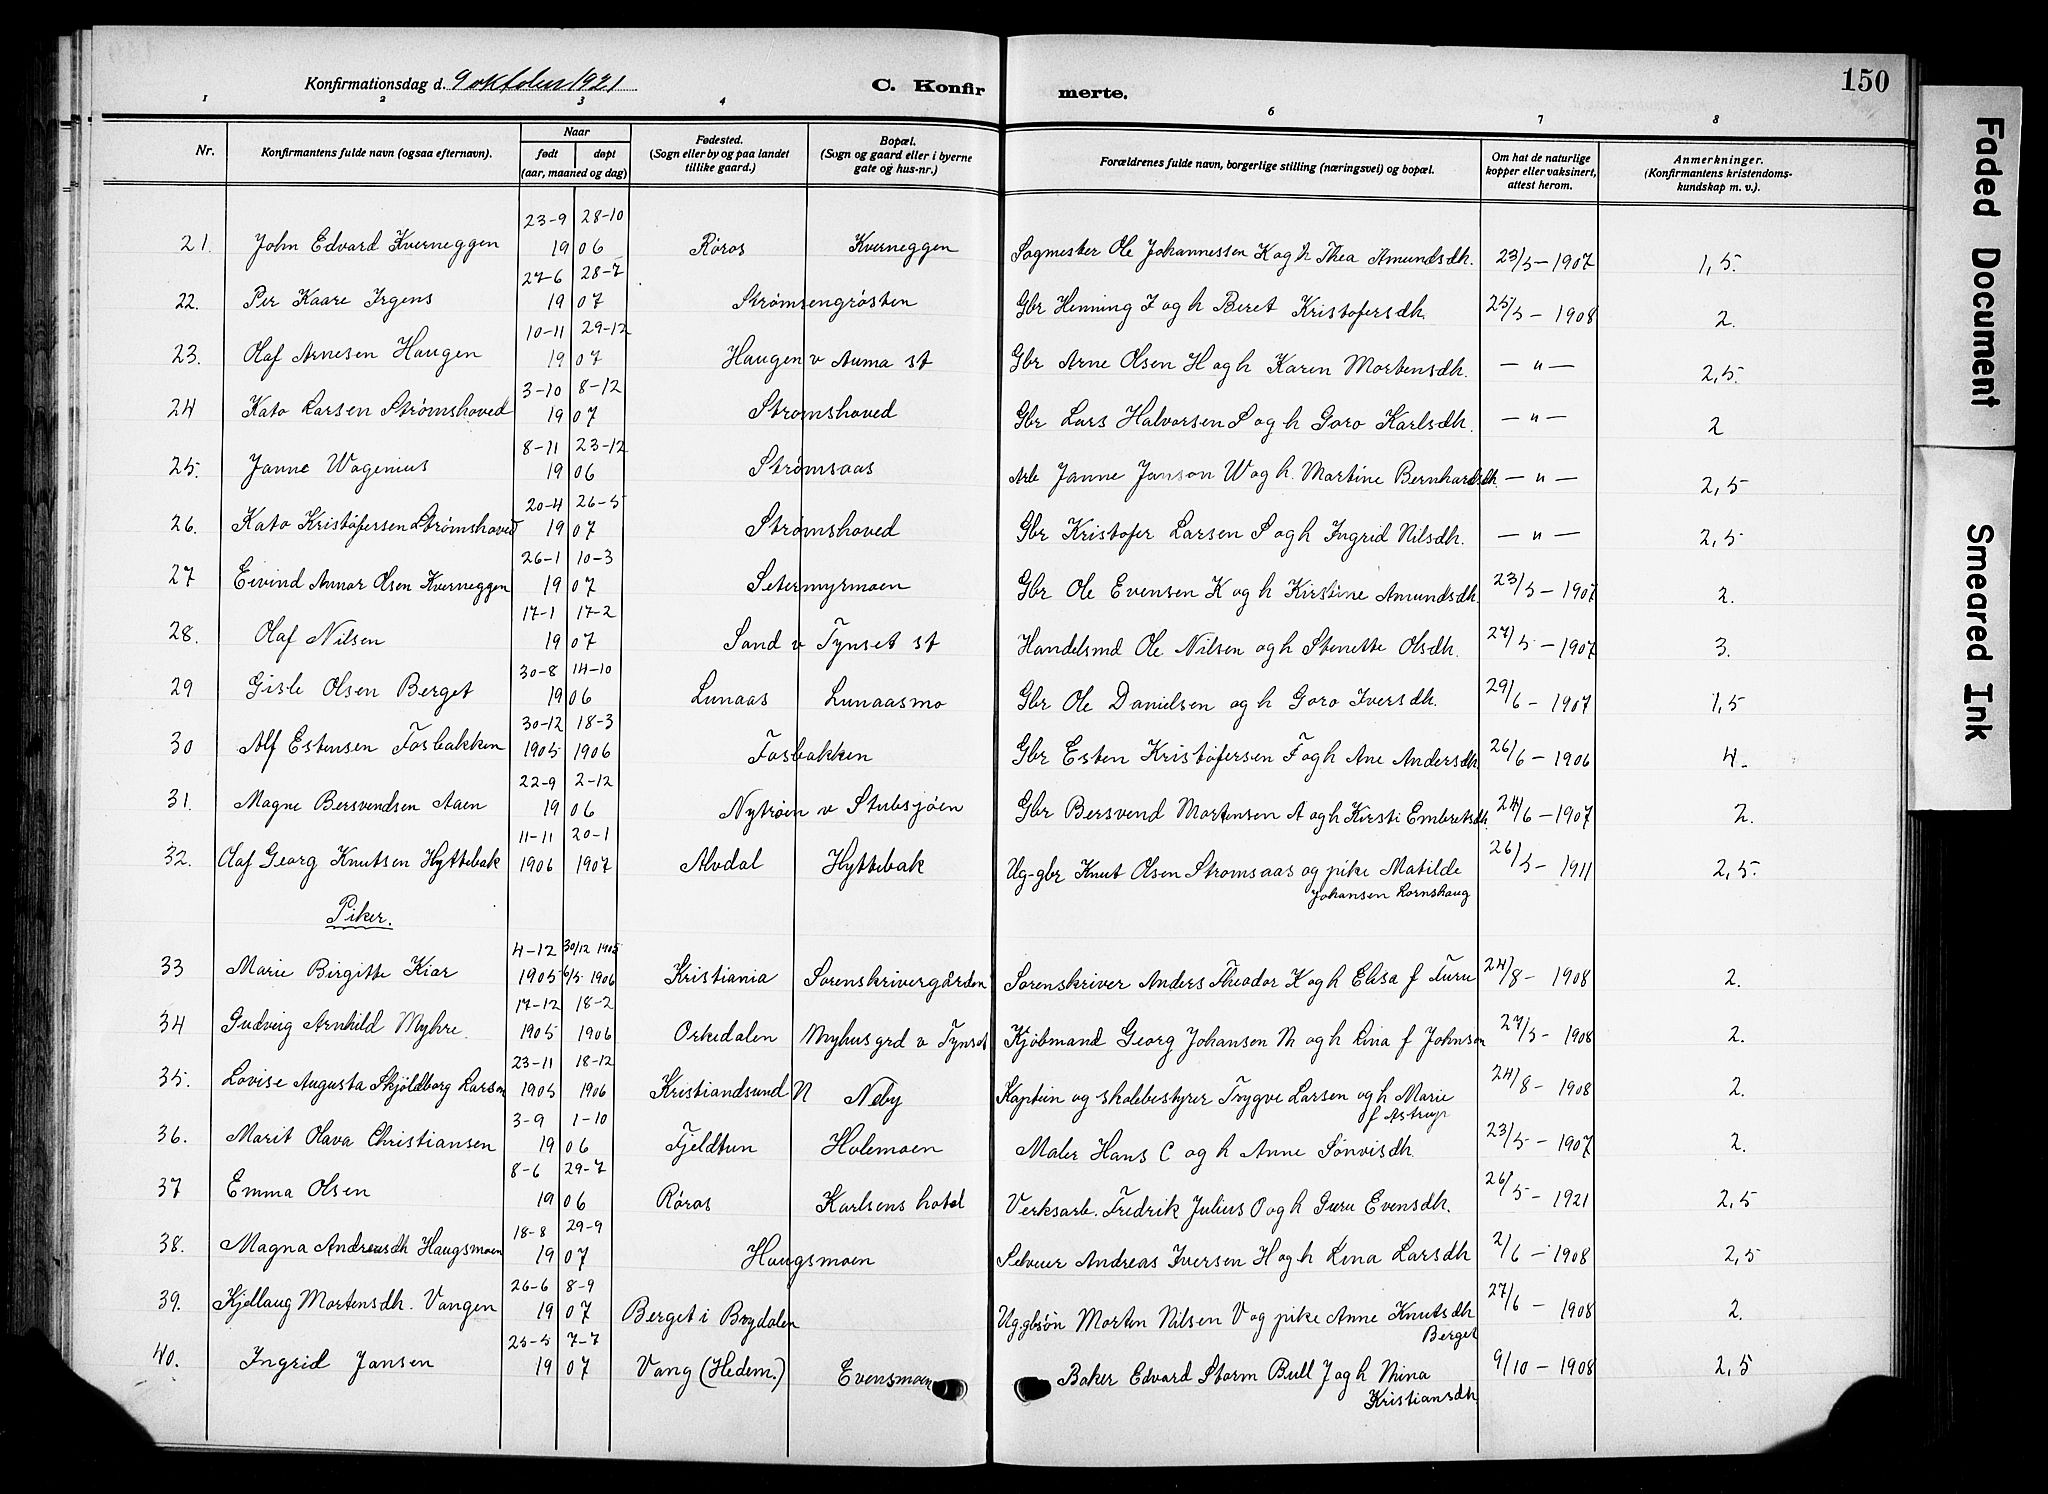 150
Konfirmationsdag d. 9 oktober 1921
C. Konfirmerte.
1 2 3 4 6 7 8
Nr.
Konfirmantens fulde navn (ogsaa efternavn).
Naar
født døpt
(aar, maaned og dag)
Fødested.
(Sogn eller by og paa landet
tillike gaard.)
Bopæl.
(Sogn og gaard eller i byerne
gate og hus-nr.)
Forældrenes fulde navn, borgerlige stilling (næringsvei) og bopæl.
Om hat de naturlige
kopper eller vaksinert,
attest herom.
Anmerkninger.
(Konfirmantens kristendoms-
kundskap m. v.).
23-9 28-10
21. John Edvard Kverneggen 1906 Røros Kverneggen Sagmester Ole Johannessen K og h Thea Amundsdh. 23/5-1907 1,5.
27-6 28-7
22. Per Kaare Irgens 1907 Strømsengrøsten Gbr Henning I og h Beret Kristofersdh. 25/5-1908 2.
10-11 29-12
23. Olaf Arnesen Haugen 1907 Haugen v Auma st Gbr Arne Olsen H og h Karen Mortensdh. - " - 2,5.
3-10 8-12
24 Kato Larsen Strømshoved 1907 Strømshoved Gbr Lars Halvorsen S og h Goro Karlsdh. - " - 2
8-11 23-12
25. Janne Wagenius 1906 Strømsaas Arb Janne Janson W og h. Martine Bernhardsdh. - " - 2,5
20-4 26-5
26. Kato Kristofersen Strømshoved 1907 Strømshoved Gbr Kristofer Larsen S og h Ingrid Nilsdh. - " - 2,5
26-1 10-3
27 Eivind Annar Olsen Kverneggen 1907 Setermyrmoen Gbr Ole Evensen K og h Kirstine Amundsdh. 23/5-1907 2.
17-1 17-2
28. Olaf Nilsen 1907 Sand v Tynset st Handelsmd Ole Nilsen og h Stenette Olsdh. 27/5-1907 3.
30-8 14-10
29 Gisle Olsen Berget 1906 Lunaas Lunaasmo Gbr Ole Danielsen og h Goro Iversdh. 29/6-1907 1,5
30-12 18-3
30 Alf Estensen Fosbakken 1905 1906 Fosbakken Gbr Esten Kristofersen F og h Ane Andersdh. 26/6-1906 4-
22-9 2-12
31. Magne Bersvendsen Aaen 1906 Nytrøen v Stubsjøen Gbr Bersvend Mortensen A og h Kirsti Embretsdh. 24/6-1907 2.
11-11 20-1
32. Olaf Georg Knutsen Hyttebak 1906 1907 Alvdal Hyttebak Ug-gbr Knut Olsen Strømsaas og pike Matilde 26/5-1911 2,5.
Johansen Kornshaug
Piker.
4-12 30/12 1905
33 Marie Birgitte Kiær 1905 6/5 1906 Kristiania Sorenskrivergården Sorenskriver Anders Theodor K og h Elisa f Furu 24/8-1908 2.
17-12 18-2
34 Gudveig Arnhild Myhre. 1905 1906 Orkedalen Myhusgrd v Tynset Kjøbmand Georg Johansen M og h Lina f Johnsen 27/5-1908 2.
23-11 18-12
35. Lovise Augusta Skjöldborg Larsen 1905 1906 Kristiandsund N Neby Kaptein og skolebestyrer Trygve Larsen og h Marie 24/8-1908 2.
f Astrup
3-9 1-10
36. Marit Olava Christiansen 1906 Fjeldtun Holemoen Maler Hans C og h Anne Sønvisdh. 23/5-1907 2.
8-6 29-7
37 Emma Olsen 1906 Røros Karlsens hotel Verksarb. Fredrik Julius O og h Guru Evensdh. 26/5-1921 2,5
18-8 29-9
38. Magna Andreasdh Haugsmoen 1907 Haugsmoen Selveier Andreas Iversen H og h Lena Larsdh 2/6-1908 2,5
26-6 8-9
39. Kjellaug Mortensdh. Vangen 1907 Berget i Brydalen Ug gbsøn Morten Nilsen V og pike Anne Knutsdh 27/6-1908 2.
Berget
25-5 7-7
40. Ingrid Jansen 1907 Vang (Hedem.) Evensmoen Baker Edvard Storm Bull J og h Mina 9/10-1908 2,5
Kristiansdh.
Faded Document
Smeared Ink